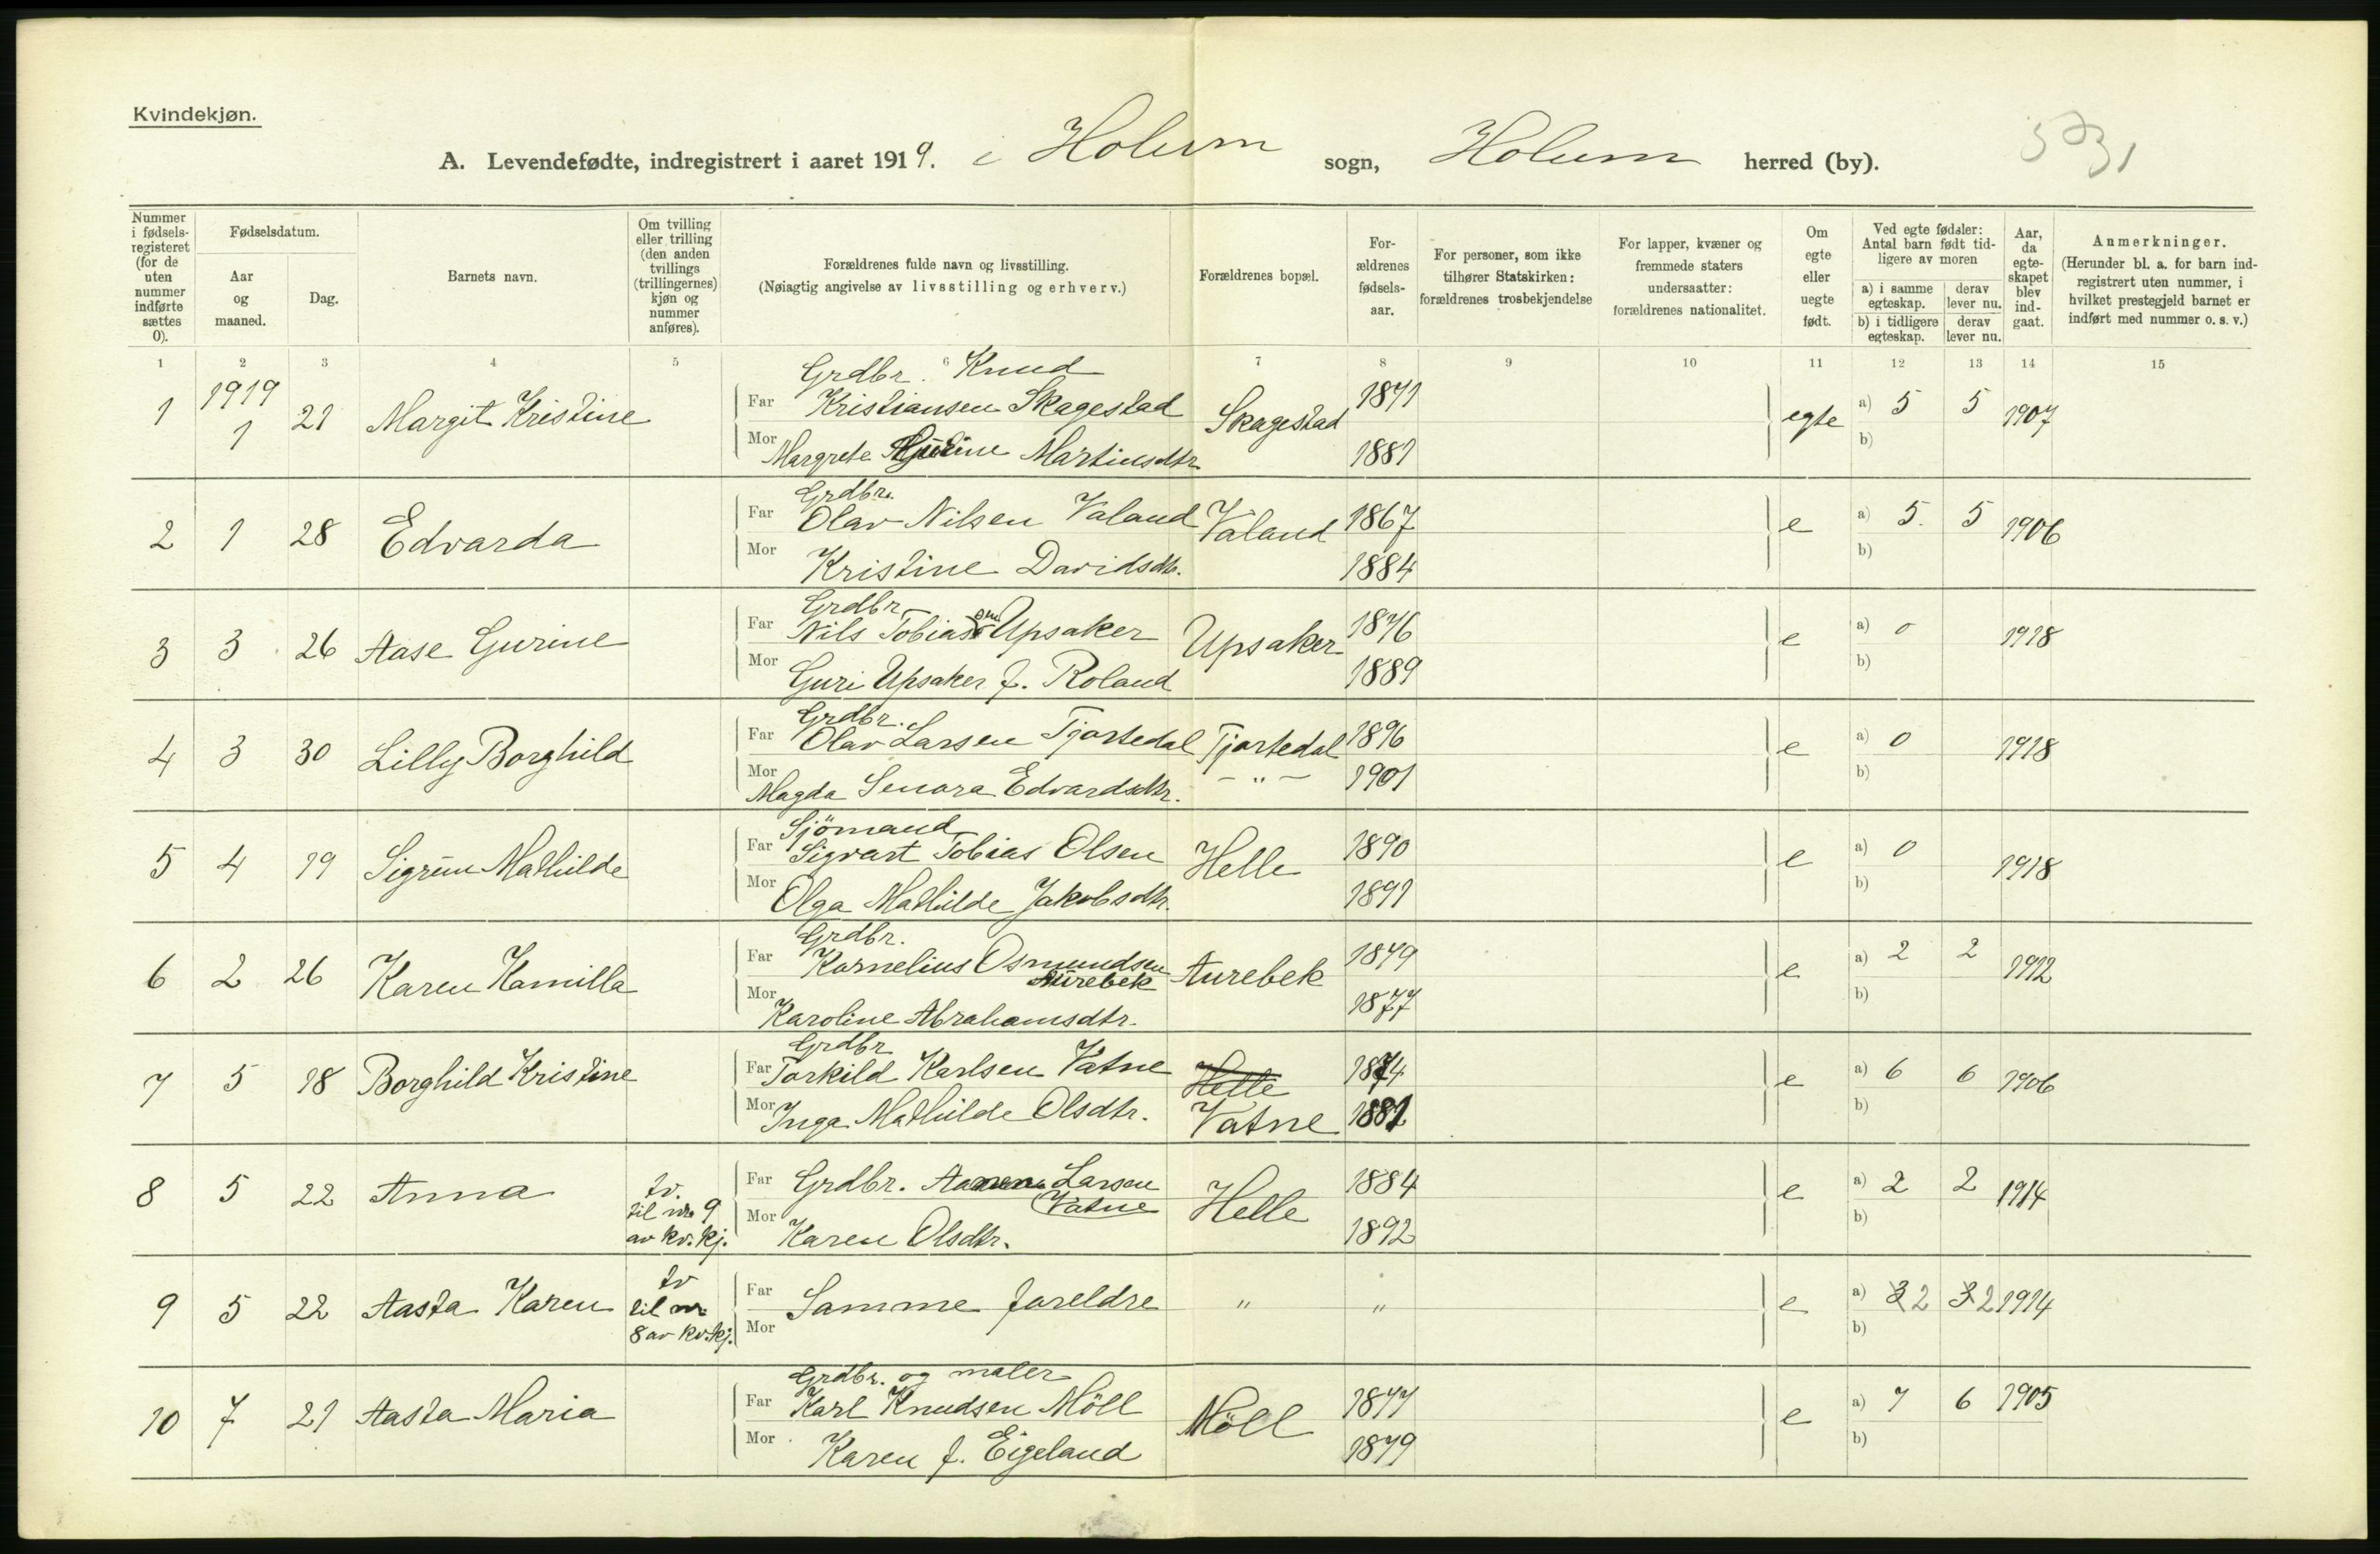 Kvindekjøn.
A. Levendefødte, indregistrert i aaret 1919. i Holum sogn, Holum herred (by).
Nummer i fødsels-registeret (for de uten nummer indførte sættes 0).
Fødselsdatum.
Aar og maaned.
Dag.
Barnets navn.
Om tvilling eller trilling (den anden tvillings (trillingernes) kjøn og nummer anføres).
Forældrenes fulde navn og livsstilling.
(Nøiagtig angivelse av livsstilling og erhverv.)
Forældrenes bopæl.
For-ældrenes fødsels-aar.
For personer, som ikke tilhører Statskirken: forældrenes trosbekjendelse
For lapper, kvæner og fremmede staters undersaatter: forældrenes nationalitet.
Om egte eller uegte født.
Ved egte fødsler: Antal barn født tid-ligere av moren
a) i samme egteskap. derav lever nu.
b) i tidligere egteskap. derav lever nu.
Aar, da egte-skapet blev ind-gaat.
Anmerkninger.
(Herunder bl. a. for barn ind-registrert uten nummer, i hvilket prestegjeld barnet er indført med nummer o. s. v.)
1 2 3 4 5 6 7 8 9 10 11 12 13 14 15
Grdbr. Knud
1 1919 1 21 Margit Kristine Far Kristiansen Skagestad Skagestad 1871 egte a) 5 5 1907
Mor Margrete Martinsdtr. 1881 b)
Grdbr.
2 1 28 Edvarda Far Olav Nilsen Valand Valand 1867 e a) 5. 5 1906
Mor Kristine Davidsdtr. 1884 b)
Grdbr
3 3 26 Aase Gurine Far Nils Tobiassen Upsaker Upsaker 1876 e a) 0 1918
Mor Guri Upsaker f. Roland 1889 b)
Grdbr.
4 3 30 Lilly Borghild Far Olav Larsen Tjortedal Tjortedal 1896 e a) 0 1918
Mor Magda Senora Edvardsdtr. - " - 1901 b)
Sjömand
5 4 19 Sigrun Mathilde Far Sigvart Tobias Olsen Helle 1890 e a) 0 1918
Mor Olga Mathilde Jakobsdtr. 1891 b)
Grdbr.
6 2 26 Karen Kamilla Far Kornelius Osmundsen Aurebek Aurebek 1879 e a) 2 2 1912
Mor Karoline Abrahamsdtr. 1877 b)
Grdbr
7 5 18 Borghild Kristine Far Torkild Karlsen Vatne Helle 1874 e a) 6 6 1906
Mor Inga Mathilde Olsdtr. Vatne 1881 b)
8 5 22 Anna tv. til nr. 9 av kv. kj. Far Grdbr. Larsen Vatne Helle 1884 e a) 2 2 1914
Mor Karen Olsdtr. 1892 b)
9 5 22 Aasta Karen tv til nr 8 av kv. kj. Far Samme foreldre " " e a) 3 2 3 2 1914
Mor b)
Grdbr. og maler
10 7 21 Aasta Maria Far Karl Knudsen Möll Möll 1877 e a) 7 6 1905
Mor Karen f. Eigeland 1879 b)